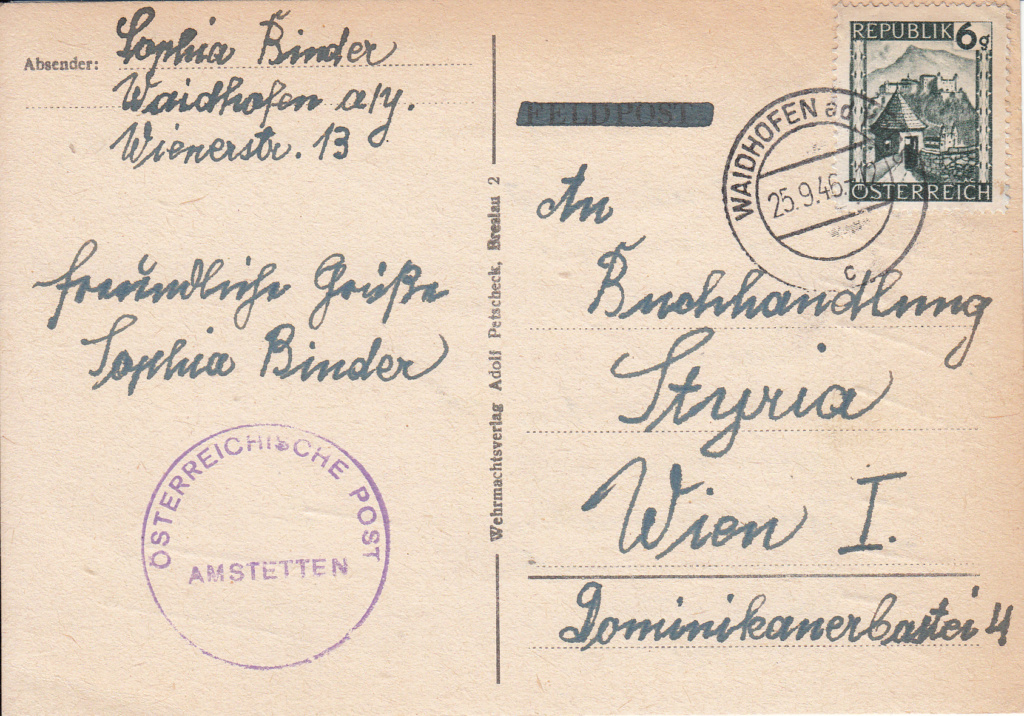 Absender: Sophia Binder
Waidhofen a/y.
Wienerstr. 13
freundliche Grüße
Sophia Binder
ÖSTERREICHISCHE POST
AMSTETTEN
Wehrmachtsverlag Adolf Petscheck, Breslau 2
FELDPOST
REPUBLIK 6g
ÖSTERREICH
WAIDHOFEN
25.9.46
c
An
Buchhandlung
Styria
Wien I.
Dominikanerbastei 4